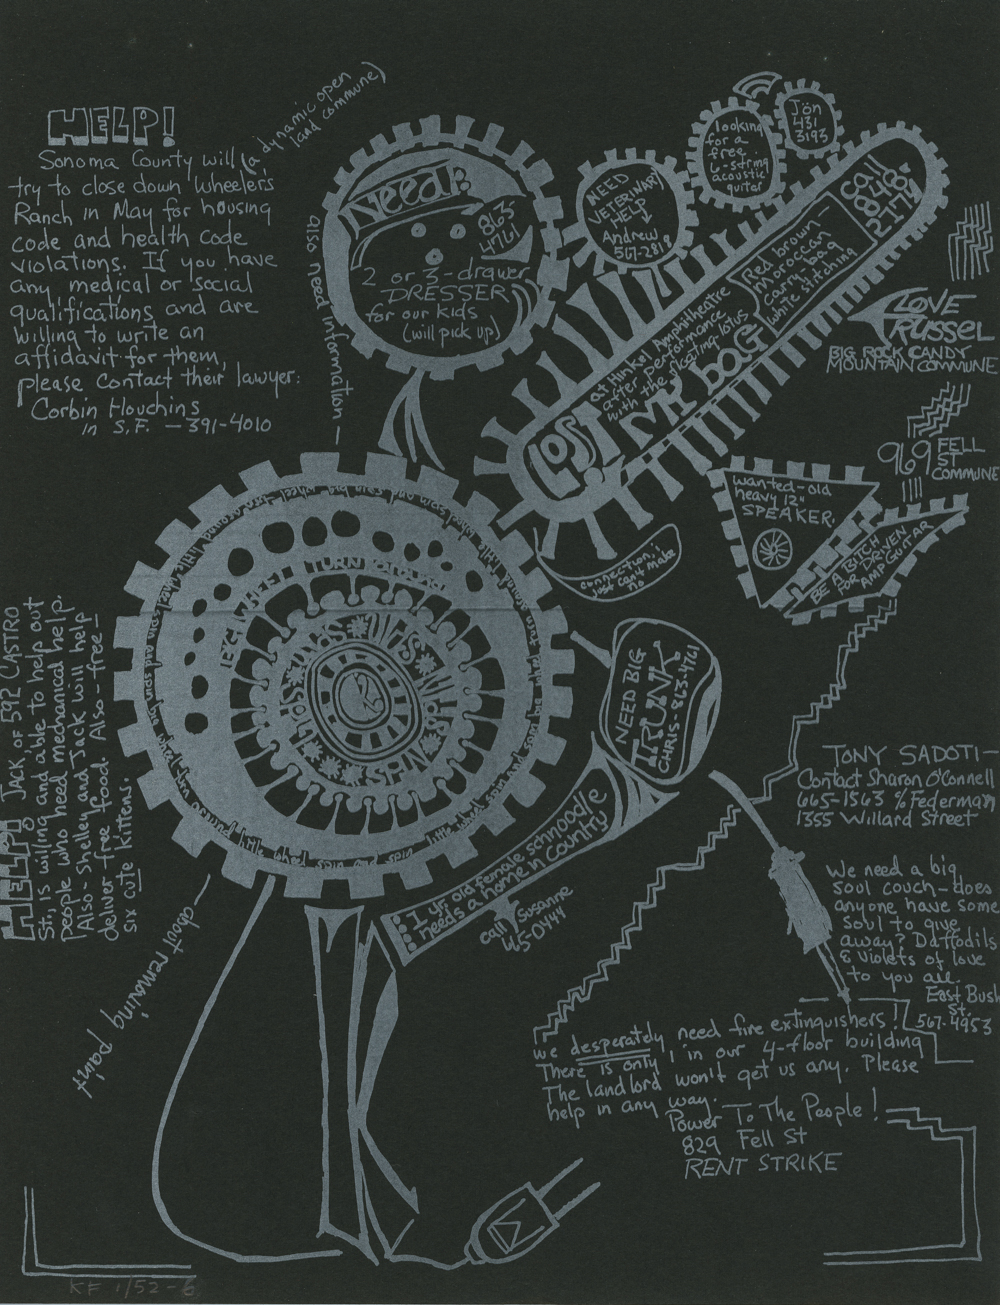 HELP!
Sonoma County will
try to close down Wheeler's
Ranch in May for housing
code and health code
violations. If you have
any medical or social
qualifications and are
willing to write an
affidavit for them,
please contact their lawyer:
Corbin Houchins
in S.F. — 391-4010
(a dynamic open
land commune)
also need information —
— about remaining paint
Need:
863-
4761
2 or 3-drawer
DRESSER
for our kids
(will pick up)
NEED
VETERINARY
HELP
Andrew
567-2819
looking
for a
free
6-string
acoustic
guitar
Jön
431
3193
LOST
MY bag
at Hinkel Amphitheatre
after performance
with the floating lotus
Red brown —
moroccan
carry-bag
white stitching
call
848-
2174
LOVE
RUSSEL
BIG ROCK CANDY
MOUNTAIN COMMUNE
969 FELL
ST
COMMUNE
wanted-old
heavy 12"
SPEAKER.
BE A BITCH
FOR DRIVEN
AMP GUITAR
connection:
just can't make
no
EACH WHEEL TURN AROUND
SPIN
NEED BIG
TRUNK
CHRIS - 863-4761
1 yr. old female schnoodle
needs a home in country
call Susanne
45-0444
HELP! JACK OF 592 CASTRO
St., is willing and able to help out
people who need mechanical help.
Also - Shelley and Jack will help
deliver free food. Also - free —
six cute kittens.
TONY SADOTI —
Contact Sharon O'Connell
665-1563 % Federman
1355 Willard Street
We need a big
soul couch - does
anyone have some
soul to give
away? Daffodils
& violets of love
to you all.
East Bush
St.
567-4953
we desperately need fire extinguishers!
There is only 1 in our 4-floor building
The landlord won't get us any. Please
help in any way.
Power To The People!
829 Fell St
RENT STRIKE
KF 1/52-6